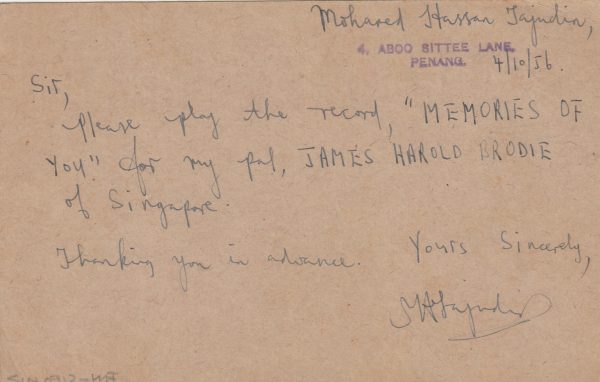 Mohared Hassan Tajudin,
4, ABOO SITTEE LANE,
PENANG. 4/10/56.
Sir,
Please play the record, "MEMORIES OF
YOU" for my pal, JAMES HAROLD BRODIE
of Singapore.
Thanking you in advance. Yours Sincerely,
MHTajudin